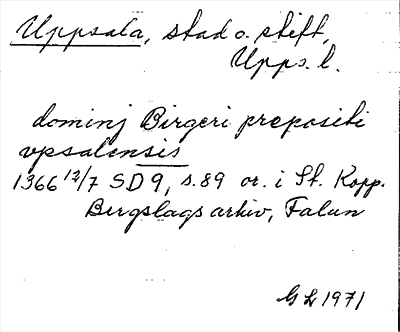 Uppsala, stad o. stift,
Upps. l.
dominj Birgeri prepositi
vpsalensis
1366 12/7 SD 9, s. 89 or. i St. Kopp.
Bergslags arkiv, Falun
GL 1971